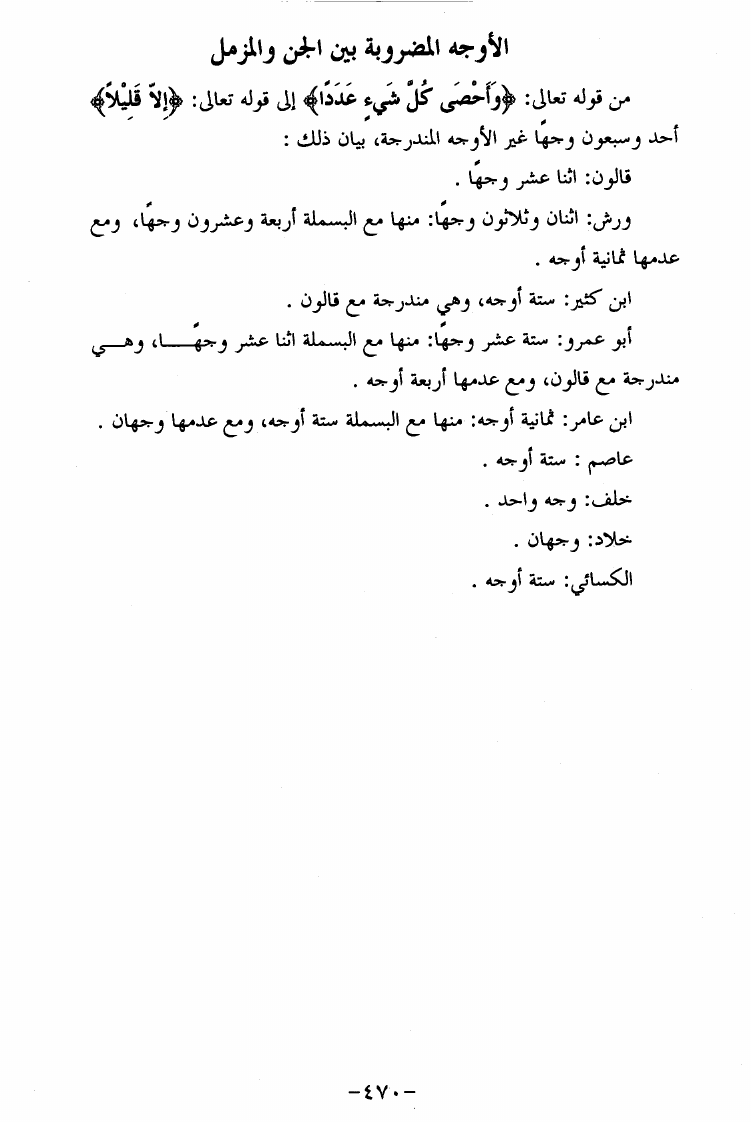 الأوجه المضروبة بين الجن والمزمل
من قوله تعالى: ﴿وَأَحْصَى كُلَّ شَيْءٍ عَدَدًا﴾ إلى قوله تعالى: ﴿إِلاَّ قَلِيْلاً﴾
أحد وسبعون وجهًا غير الأوجه المندرجة، بيان ذلك :
قالون: اثنا عشر وجهًا .
ورش: اثنان وثلاثون وجهًا: منها مع البسملة أربعة وعشرون وجهًا، ومع
عدمها ثمانية أوجه .
ابن كثير: ستة أوجه، وهي مندرجة مع قالون .
أبو عمرو: ستة عشر وجهًا: منها مع البسملة اثنا عشر وجهًـــا، وهـــي
مندرجة مع قالون، ومع عدمها أربعة أوجه .
ابن عامر: ثمانية أوجه: منها مع البسملة ستة أوجه، ومع عدمها وجهان .
عاصم : ستة أوجه .
خلف: وجه واحد .
خلاد: وجهان .
الكسائي: ستة أوجه .
-٤٧٠-